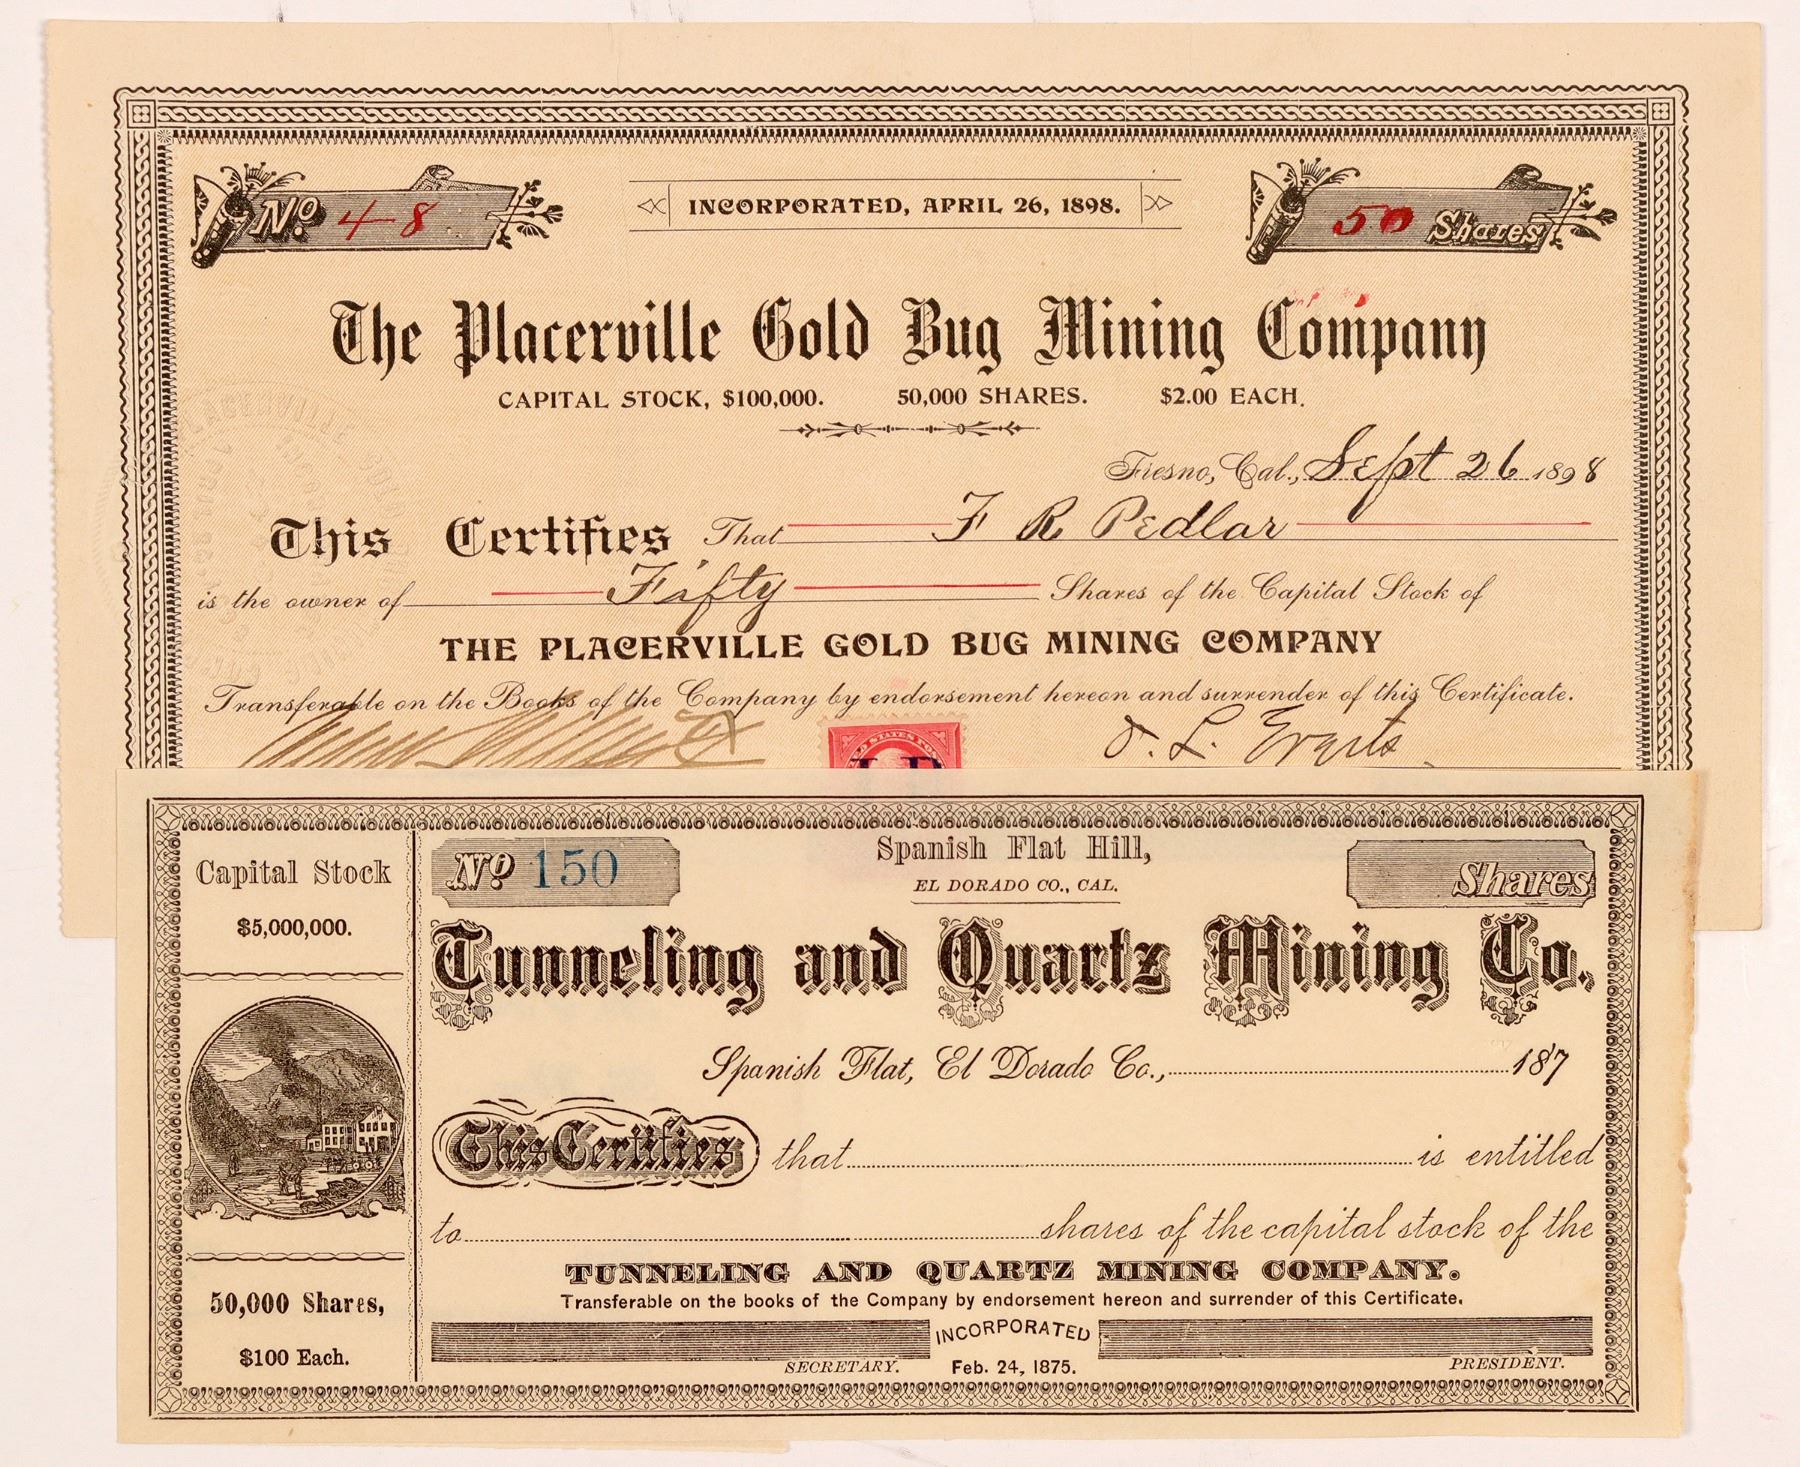 No. 48
INCORPORATED, APRIL 26, 1898.
50 Shares
The Placerville Gold Bug Mining Company
CAPITAL STOCK, $100,000. 50,000 SHARES. $2.00 EACH.
Fresno, Cal., Sept 26 1898
This Certifies That F R Pedlar
is the owner of Fifty Shares of the Capital Stock of
THE PLACERVILLE GOLD BUG MINING COMPANY
Transferable on the Books of the Company by endorsement hereon and surrender of this Certificate.
O. L. Everts
Capital Stock
$5,000,000.
50,000 Shares,
$100 Each.
No 150
Spanish Flat Hill,
EL DORADO CO., CAL.
Shares
Tunneling and Quartz Mining Co.,
Spanish Flat, El Dorado Co., 187
This Certifies that is entitled
to shares of the capital stock of the
TUNNELING AND QUARTZ MINING COMPANY.
Transferable on the books of the Company by endorsement hereon and surrender of this Certificate.
INCORPORATED
SECRETARY. Feb. 24, 1875. PRESIDENT.